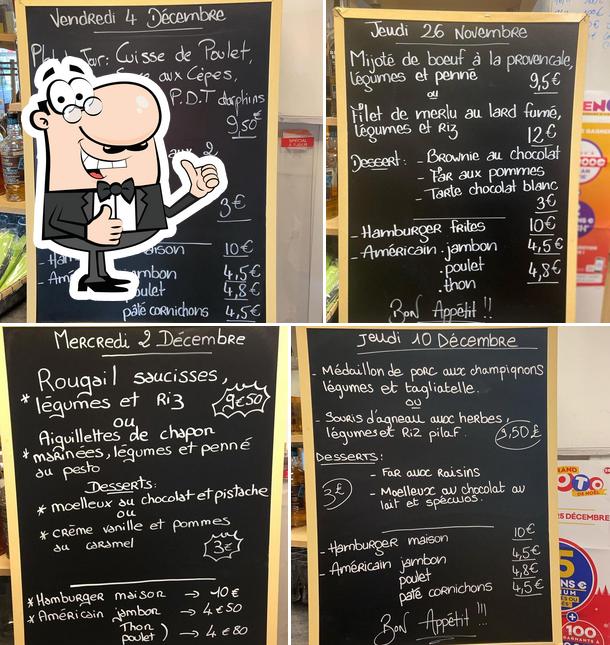 Vendredi 4 Décembre
Cuisse de Poulet,
aux Cèpes,
P.D.T dauphins
9,50€
3€
maison 10€
jambon 4,5€
poulet 4,8€
pâté cornichons 4,5€
Jeudi 26 Novembre
Mijoté de boeuf à la provencale,
légumes et penné 9,5€
ou
Filet de merlu au lard fumé,
légumes et Riz 12€
Dessert : - Brownie au chocolat
- Far aux pommes
- Tarte chocolat blanc
3€
- Hamburger frites 10€
- Américain . jambon 4,5€
. poulet 4,8€
. thon
Bon Appétit !!
Mercredi 2 Décembre
Rougail saucisses,
* légumes et Riz 9€50
ou
Aiguillettes de chapon
* marinées, légumes et penné
au pesto
Desserts :
* moelleux au chocolat et pistache
ou
* crème vanille et pommes
au caramel 3€
* Hamburger maison → 10€
* Américain jambon → 4€50
Thon
poulet ) → 4€80
Jeudi 10 Décembre
- Médaillon de porc aux champignons
légumes et tagliatelle.
ou
- Souris d'agneau aux herbes,
légumes et Riz pilaf. 9,50£
Desserts :
- Far aux Raisins
3£ - Moelleux au chocolat au
lait et spéculos.
- Hamburger maison 10€
- Américain jambon 4,5€
poulet 4,8€
pâté cornichons 4,5€
Bon Appétit !!!